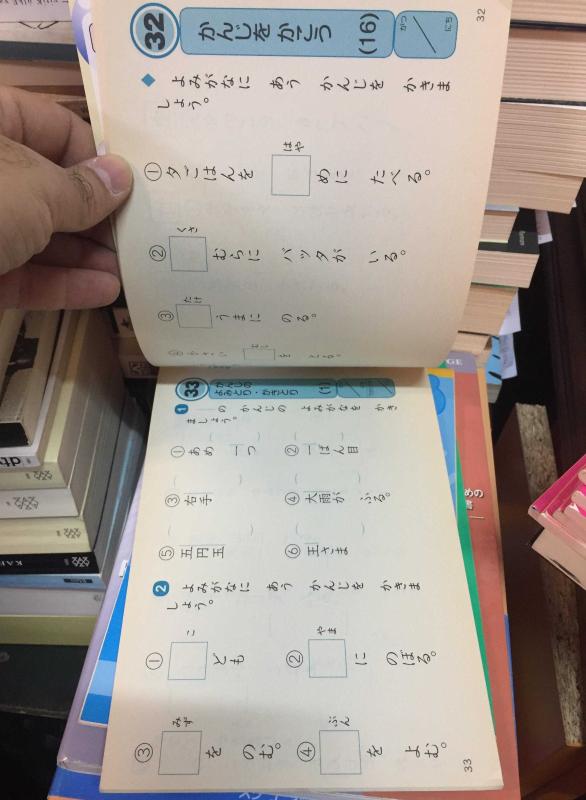 32
かんじを かこう
(16)
がつ
にち
32
◆ よみがなに あう かんじを かきま
しょう。
① 夕ごはんを □ めに たべる。
はや
② □ むらに バッタが いる。
くさ
③ □ うまに のる。
たけ
33
かんじの
よみとり・かきとり
(1)
1 の かんじの よみがなを かき
ましょう。
① あめ 一つ
② 一ばん目
③ 右手
④ 大雨が ふる。
⑤ 五円玉
⑥ 王さま
2 よみがなに あう かんじを かきま
しょう。
① □ ども
こ
② □ に のぼる。
やま
③ □ を のむ。
みず
④ □ を よむ。
ぶん
33